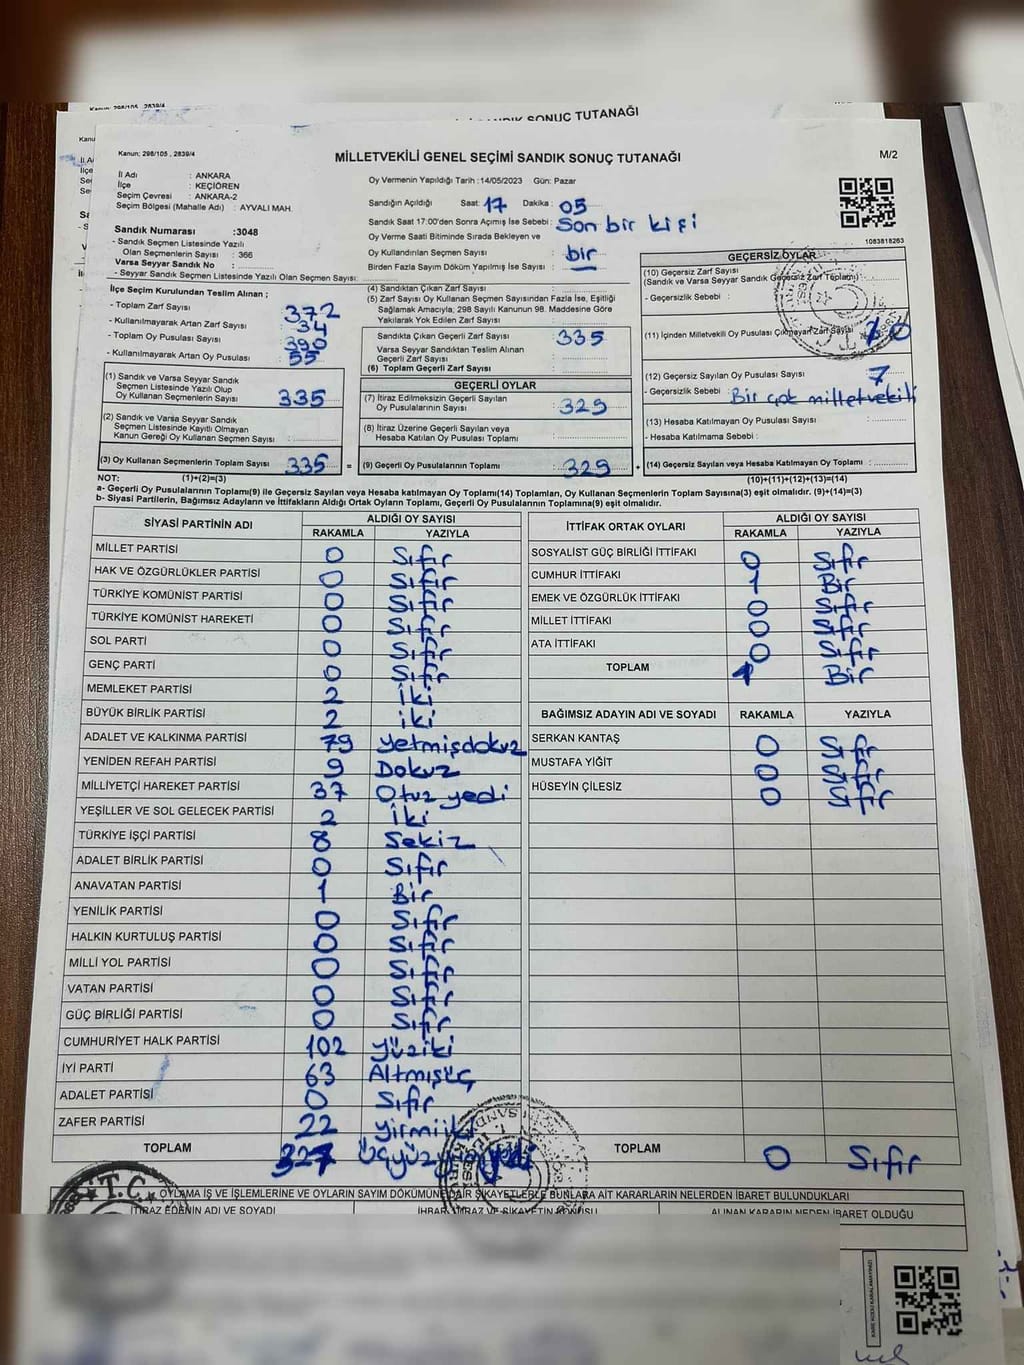 SANDIK SONUÇ TUTANAĞI
Kanun; 298/105 , 2839/4
MİLLETVEKİLİ GENEL SEÇİMİ SANDIK SONUÇ TUTANAĞI
M/2
İl Adı : ANKARA
İlçe : KEÇİÖREN
Seçim Çevresi : ANKARA-2
Seçim Bölgesi (Mahalle Adı) : AYVALI MAH.
Sandık Numarası :3048
- Sandık Seçmen Listesinde Yazılı
Olan Seçmenlerin Sayısı : 366
Varsa Seyyar Sandık No :
- Seyyar Sandık Seçmen Listesinde Yazılı Olan Seçmen Sayısı:
Oy Vermenin Yapıldığı Tarih :14/05/2023 Gün: Pazar
Sandığın Açıldığı Saat: 17 Dakika : 05
Sandık Saat 17:00'den Sonra Açılmış İse Sebebi : Son bir kişi
Oy Verme Saati Bitiminde Sırada Bekleyen ve
Oy Kullandırılan Seçmen Sayısı : bir
Birden Fazla Sayım Döküm Yapılmış İse Sayısı :
1083818263
İlçe Seçim Kurulundan Teslim Alınan ;
- Toplam Zarf Sayısı : 372
- Kullanılmayarak Artan Zarf Sayısı : 34
- Toplam Oy Pusulası Sayısı : 390
- Kullanılmayarak Artan Oy Pusulası : 55
(1) Sandık ve Varsa Seyyar Sandık
Seçmen Listesinde Yazılı Olup
Oy Kullanan Seçmenlerin Sayısı : 335
(2) Sandık ve Varsa Seyyar Sandık
Seçmen Listesinde Kayıtlı Olmayan
Kanun Gereği Oy Kullanan Seçmen Sayısı :
(3) Oy Kullanan Seçmenlerin Toplam Sayısı : 335 =
(4) Sandıktan Çıkan Zarf Sayısı :
(5) Zarf Sayısı Oy Kullanan Seçmen Sayısından Fazla İse, Eşitliği
Sağlamak Amacıyla; 298 Sayılı Kanunun 98. Maddesine Göre
Yakılarak Yok Edilen Zarf Sayısı :
Sandıkta Çıkan Geçerli Zarf Sayısı : 335
Varsa Seyyar Sandıktan Teslim Alınan
Geçerli Zarf Sayısı :
(6) Toplam Geçerli Zarf Sayısı :
GEÇERLİ OYLAR
(7) İtiraz Edilmeksizin Geçerli Sayılan
Oy Pusulalarının Sayısı : 329
(8) İtiraz Üzerine Geçerli Sayılan veya
Hesaba Katılan Oy Pusulası Toplamı :
(9) Geçerli Oy Pusulalarının Toplamı : 329 +
GEÇERSİZ OYLAR
(10) Geçersiz Zarf Sayısı
(Sandık ve Varsa Seyyar Sandık Geçersiz Zarf Toplamı) :
- Geçersizlik Sebebi :
(11) İçinden Milletvekili Oy Pusulası Çıkmayan Zarf Sayısı
(12) Geçersiz Sayılan Oy Pusulası Sayısı : 7
- Geçersizlik Sebebi : Bir çok milletvekili
(13) Hesaba Katılmayan Oy Pusulası Sayısı :
- Hesaba Katılmama Sebebi :
(14) Geçersiz Sayılan veya Hesaba Katılmayan Oy Toplamı :
NOT: (1)+(2)=(3) (10)+(11)+(12)+(13)=(14)
a- Geçerli Oy Pusulalarının Toplamı(9) ile Geçersiz Sayılan veya Hesaba katılmayan Oy Toplamı(14) Toplamları, Oy Kullanan Seçmenlerin Toplam Sayısına(3) eşit olmalıdır. (9)+(14)=(3)
b- Siyasi Partilerin, Bağımsız Adayların ve İttifakların Aldığı Ortak Oyların Toplamı, Geçerli Oy Pusulalarının Toplamına(9) eşit olmalıdır.
SİYASİ PARTİNİN ADI ALDIĞI OY SAYISI
RAKAMLA YAZIYLA
MİLLET PARTİSİ 0 Sıfır
HAK VE ÖZGÜRLÜKLER PARTİSİ 0 Sıfır
TÜRKİYE KOMÜNİST PARTİSİ 0 Sıfır
TÜRKİYE KOMÜNİST HAREKETİ 0 Sıfır
SOL PARTİ 0 Sıfır
GENÇ PARTİ 0 Sıfır
MEMLEKET PARTİSİ 2 iki
BÜYÜK BİRLİK PARTİSİ 2 iki
ADALET VE KALKINMA PARTİSİ 79 yetmişdokuz
YENİDEN REFAH PARTİSİ 9 Dokuz
MİLLİYETÇİ HAREKET PARTİSİ 37 Otuz yedi
YEŞİLLER VE SOL GELECEK PARTİSİ 2 iki
TÜRKİYE İŞÇİ PARTİSİ 8 Sekiz
ADALET BİRLİK PARTİSİ 0 Sıfır
ANAVATAN PARTİSİ 1 Bir
YENİLİK PARTİSİ 0 Sıfır
HALKIN KURTULUŞ PARTİSİ 0 Sıfır
MİLLİ YOL PARTİSİ 0 Sıfır
VATAN PARTİSİ 0 Sıfır
GÜÇ BİRLİĞİ PARTİSİ 0 Sıfır
CUMHURİYET HALK PARTİSİ 102 yüziki
İYİ PARTİ 63 Altmışüç
ADALET PARTİSİ 0 Sıfır
ZAFER PARTİSİ 22 yirmiiki
TOPLAM 327
İTTİFAK ORTAK OYLARI ALDIĞI OY SAYISI
RAKAMLA YAZIYLA
SOSYALİST GÜÇ BİRLİĞİ İTTİFAKI 0 Sıfır
CUMHUR İTTİFAKI 1 Bir
EMEK VE ÖZGÜRLÜK İTTİFAKI 0 Sıfır
MİLLET İTTİFAKI 0 Sıfır
ATA İTTİFAKI 0 Sıfır
TOPLAM 1 Bir
BAĞIMSIZ ADAYIN ADI VE SOYADI RAKAMLA YAZIYLA
SERKAN KANTAŞ 0 Sıfır
MUSTAFA YİĞİT 0 Sıfır
HÜSEYİN ÇİLESİZ 0 Sıfır
TOPLAM 0 Sıfır
T.C.
OYLAMA İŞ VE İŞLEMLERİNE VE OYLARIN SAYIM DÖKÜMÜNE DAİR ŞİKAYETLERLE BUNLARA AİT KARARLARIN NELERDEN İBARET BULUNDUKLARI
İTİRAZ EDENİN ADI VE SOYADI
ALINAN KARARIN NEDEN İBARET OLDUĞU